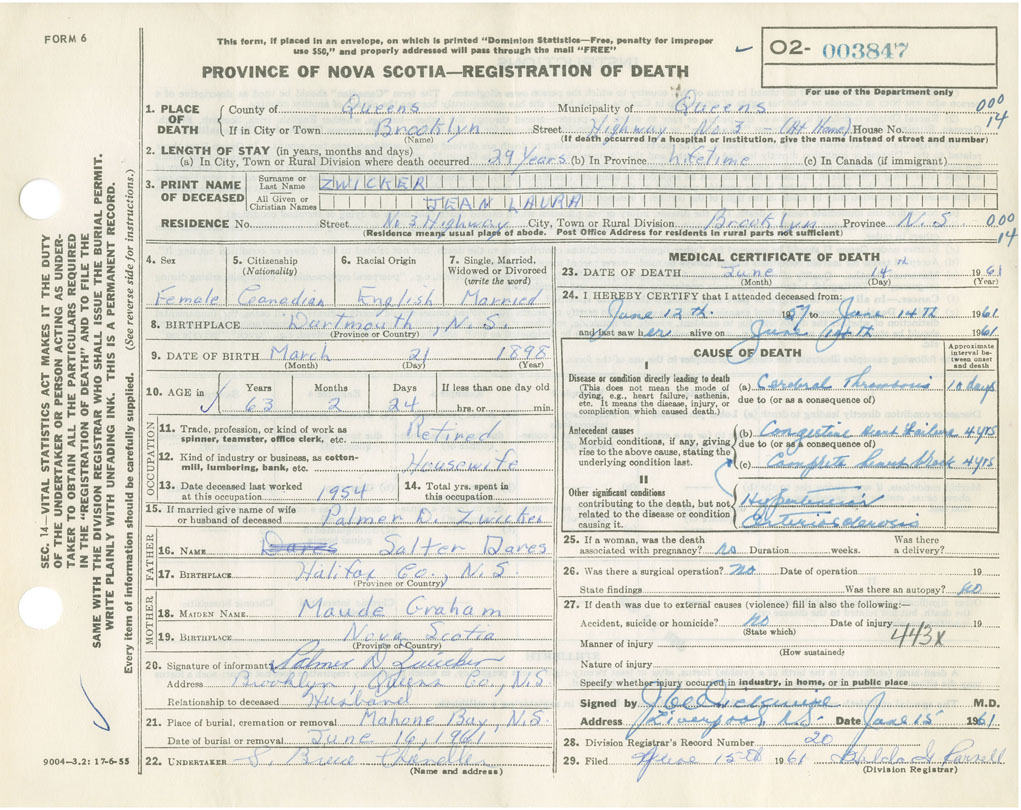 FORM 6
This form, if placed in an envelope, on which is printed "Dominion Statistics—Free, penalty for improper
use $50," and properly addressed will pass through the mail "FREE"
O2- 003847
PROVINCE OF NOVA SCOTIA—REGISTRATION OF DEATH
For use of the Department only
1. PLACE OF DEATH County of Queens Municipality of Queens 000
If in City or Town Brooklyn Street Highway No 3 - (At Home) House No. 14
(Name) (If death occurred in a hospital or institution, give the name instead of street and number)
2. LENGTH OF STAY (in years, months and days)
(a) In City, Town or Rural Division where death occurred 29 Years (b) In Province Lifetime (c) In Canada (if immigrant)
3. PRINT NAME OF DECEASED Surname or Last Name ZWICKER
All Given or Christian Names JEAN LAURA
RESIDENCE No. Street No 3 Highway City, Town or Rural Division Brooklyn Province N.S 000
(Residence means usual place of abode. Post Office Address for residents in rural parts not sufficient) 14
4. Sex Female
5. Citizenship (Nationality) Canadian
6. Racial Origin English
7. Single, Married, Widowed or Divorced (write the word) Married
8. BIRTHPLACE Dartmouth, N.S.
(Province or Country)
9. DATE OF BIRTH March 21 1898
(Month) (Day) (Year)
10. AGE in Years Months Days If less than one day old
63 2 24 hrs. or min.
OCCUPATION
11. Trade, profession or kind of work as spinner, teamster, office clerk, etc. Retired
12. Kind of industry or business, as cotton-mill, lumbering, bank, etc. Housewife
13. Date deceased last worked at this occupation 1954
14. Total yrs. spent in this occupation
15. If married give name of wife or husband of deceased Palmer D. Zwicker
FATHER
16. NAME Dares Salter Dares
17. BIRTHPLACE Halifax Co., N.S.
(Province or Country)
MOTHER
18. MAIDEN NAME Maude Graham
19. BIRTHPLACE Nova Scotia
(Province or Country)
20. Signature of informant Palmer D Zwicker
Address Brooklyn, Queens Co., N.S
Relationship to deceased Husband
21. Place of burial, cremation or removal Mahone Bay, N.S.
Date of burial or removal June 16, 1961
22. UNDERTAKER S. Bruce Chandler
(Name and address)
MEDICAL CERTIFICATE OF DEATH
23. DATE OF DEATH June 14th 1961
(Month) (Day) (Year)
24. I HEREBY CERTIFY that I attended deceased from:
June 12th 1957 to June 14th 1961
and last saw her alive on June 1961
CAUSE OF DEATH
Approximate interval between onset and death
I
Disease or condition directly leading to death
(This does not mean the mode of dying, e.g., heart failure, asthenia, etc. It means the disease, injury, or complication which caused death.)
(a) Cerebral Thrombosis 10 days
due to (or as a consequence of)
Antecedent causes
Morbid conditions, if any, giving rise to the above cause, stating the underlying condition last.
(b) Congestive Heart Failure 4 yrs
due to (or as a consequence of)
(c) Complete heart block 4 yrs
II
Other significant conditions
contributing to the death, but not related to the disease or condition causing it.
Hypertension
Arteriosclerosis
25. If a woman, was the death associated with pregnancy? no Duration weeks. Was there a delivery?
26. Was there a surgical operation? No Date of operation 19
State findings Was there an autopsy? No
27. If death was due to external causes (violence) fill in also the following:—
Accident, suicide or homicide? No Date of injury 19
(State which)
443X
Manner of injury
(How sustained)
Nature of injury
Specify whether injury occurred in industry, in home, or in public place
Signed by M.D.
Address Liverpool, N.S. Date June 15 1961
28. Division Registrar's Record Number 20
29. Filed June 15th 1961 Hilda G Parnell
(Division Registrar)
SEC. 14—VITAL STATISTICS ACT MAKES IT THE DUTY
OF THE UNDERTAKER OR PERSON ACTING AS UNDER-
TAKER TO OBTAIN ALL THE PARTICULARS REQUIRED
IN THE "REGISTRATION OF DEATH" AND TO FILE THE
SAME WITH THE DIVISION REGISTRAR WHO SHALL ISSUE THE BURIAL PERMIT.
WRITE PLAINLY WITH UNFADING INK. THIS IS A PERMANENT RECORD.
Every item of information should be carefully supplied. (See reverse side for instructions.)
9004—3.2: 17-6-55